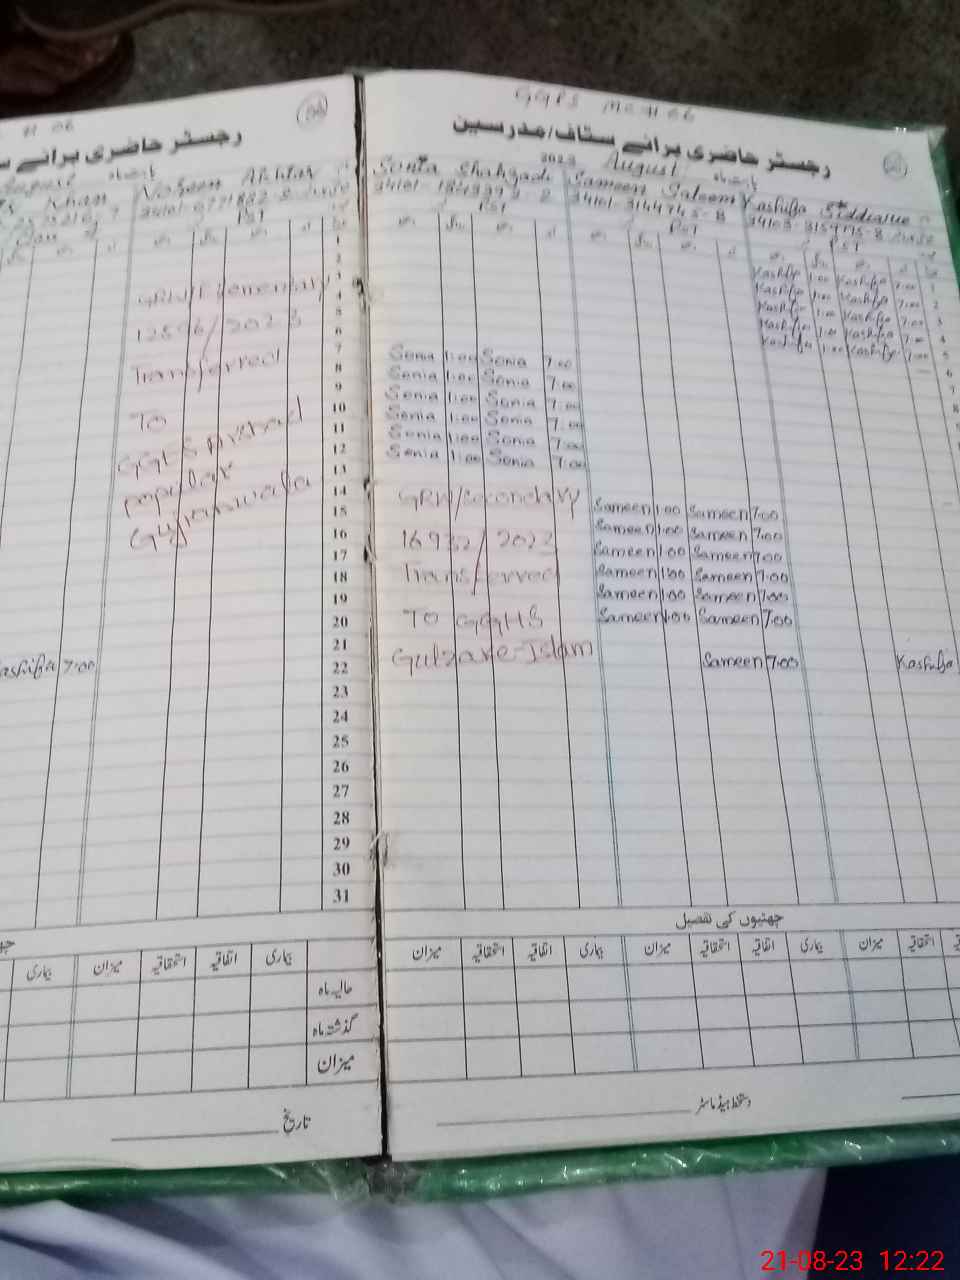 GGPS MC H 06
رجسٹر حاضری برائے سٹاف/مدرسین
بابت ماہ August 2023
Khan
Noheen Akhtar
34101-6771882-8
PST
GRW/Elementary
12596/2023
Transferred
TO
GGES
popular
Gujranwala
Kashifa 7:00
Sonia Shahzadi
PST
Sonia 1:00 Sonia 7:00
Sonia 1:00 Sonia 7:00
Sonia 1:00 Sonia 7:00
Sonia 1:00 Sonia 7:00
Sonia 1:00 Sonia 7:00
Sonia 1:00 Sonia 7:00
GRW/Secondary
16932/2023
Transferred
TO GGHS
Gulzare-Islam
Sameen Saleem
34101-3144745-8
PST
Sameen 1:00 Sameen 7:00
Sameen 1:00 Sameen 7:00
Sameen 1:00 Sameen 7:00
Sameen 1:00 Sameen 7:00
Sameen 1:00 Sameen 7:00
Sameen 1:00 Sameen 7:00
Sameen 7:00
Kashifa Siddique
34103-3159775-8
PST
Kashifa 1:00 Kashifa 7:00
Kashifa 1:00 Kashifa 7:00
Kashifa 1:00 Kashifa 7:00
Kashifa 1:00 Kashifa 7:00
Kashifa 1:00 Kashifa 7:00
Kashifa
1
2
3
4
5
6
7
8
9
10
11
12
13
14
15
16
17
18
19
20
21
22
23
24
25
26
27
28
29
30
31
چھٹیوں کی تفصیل
بیماری اتفاقیہ استحقاقیہ میزان بیماری
حالیہ ماہ
گذشتہ ماہ
میزان
بیماری اتفاقیہ استحقاقیہ میزان
استحقاقیہ میزان بیماری اتفاقیہ استحقاقیہ میزان
تاریخ
دستخط ہیڈ ماسٹر
21-08-23 12:22